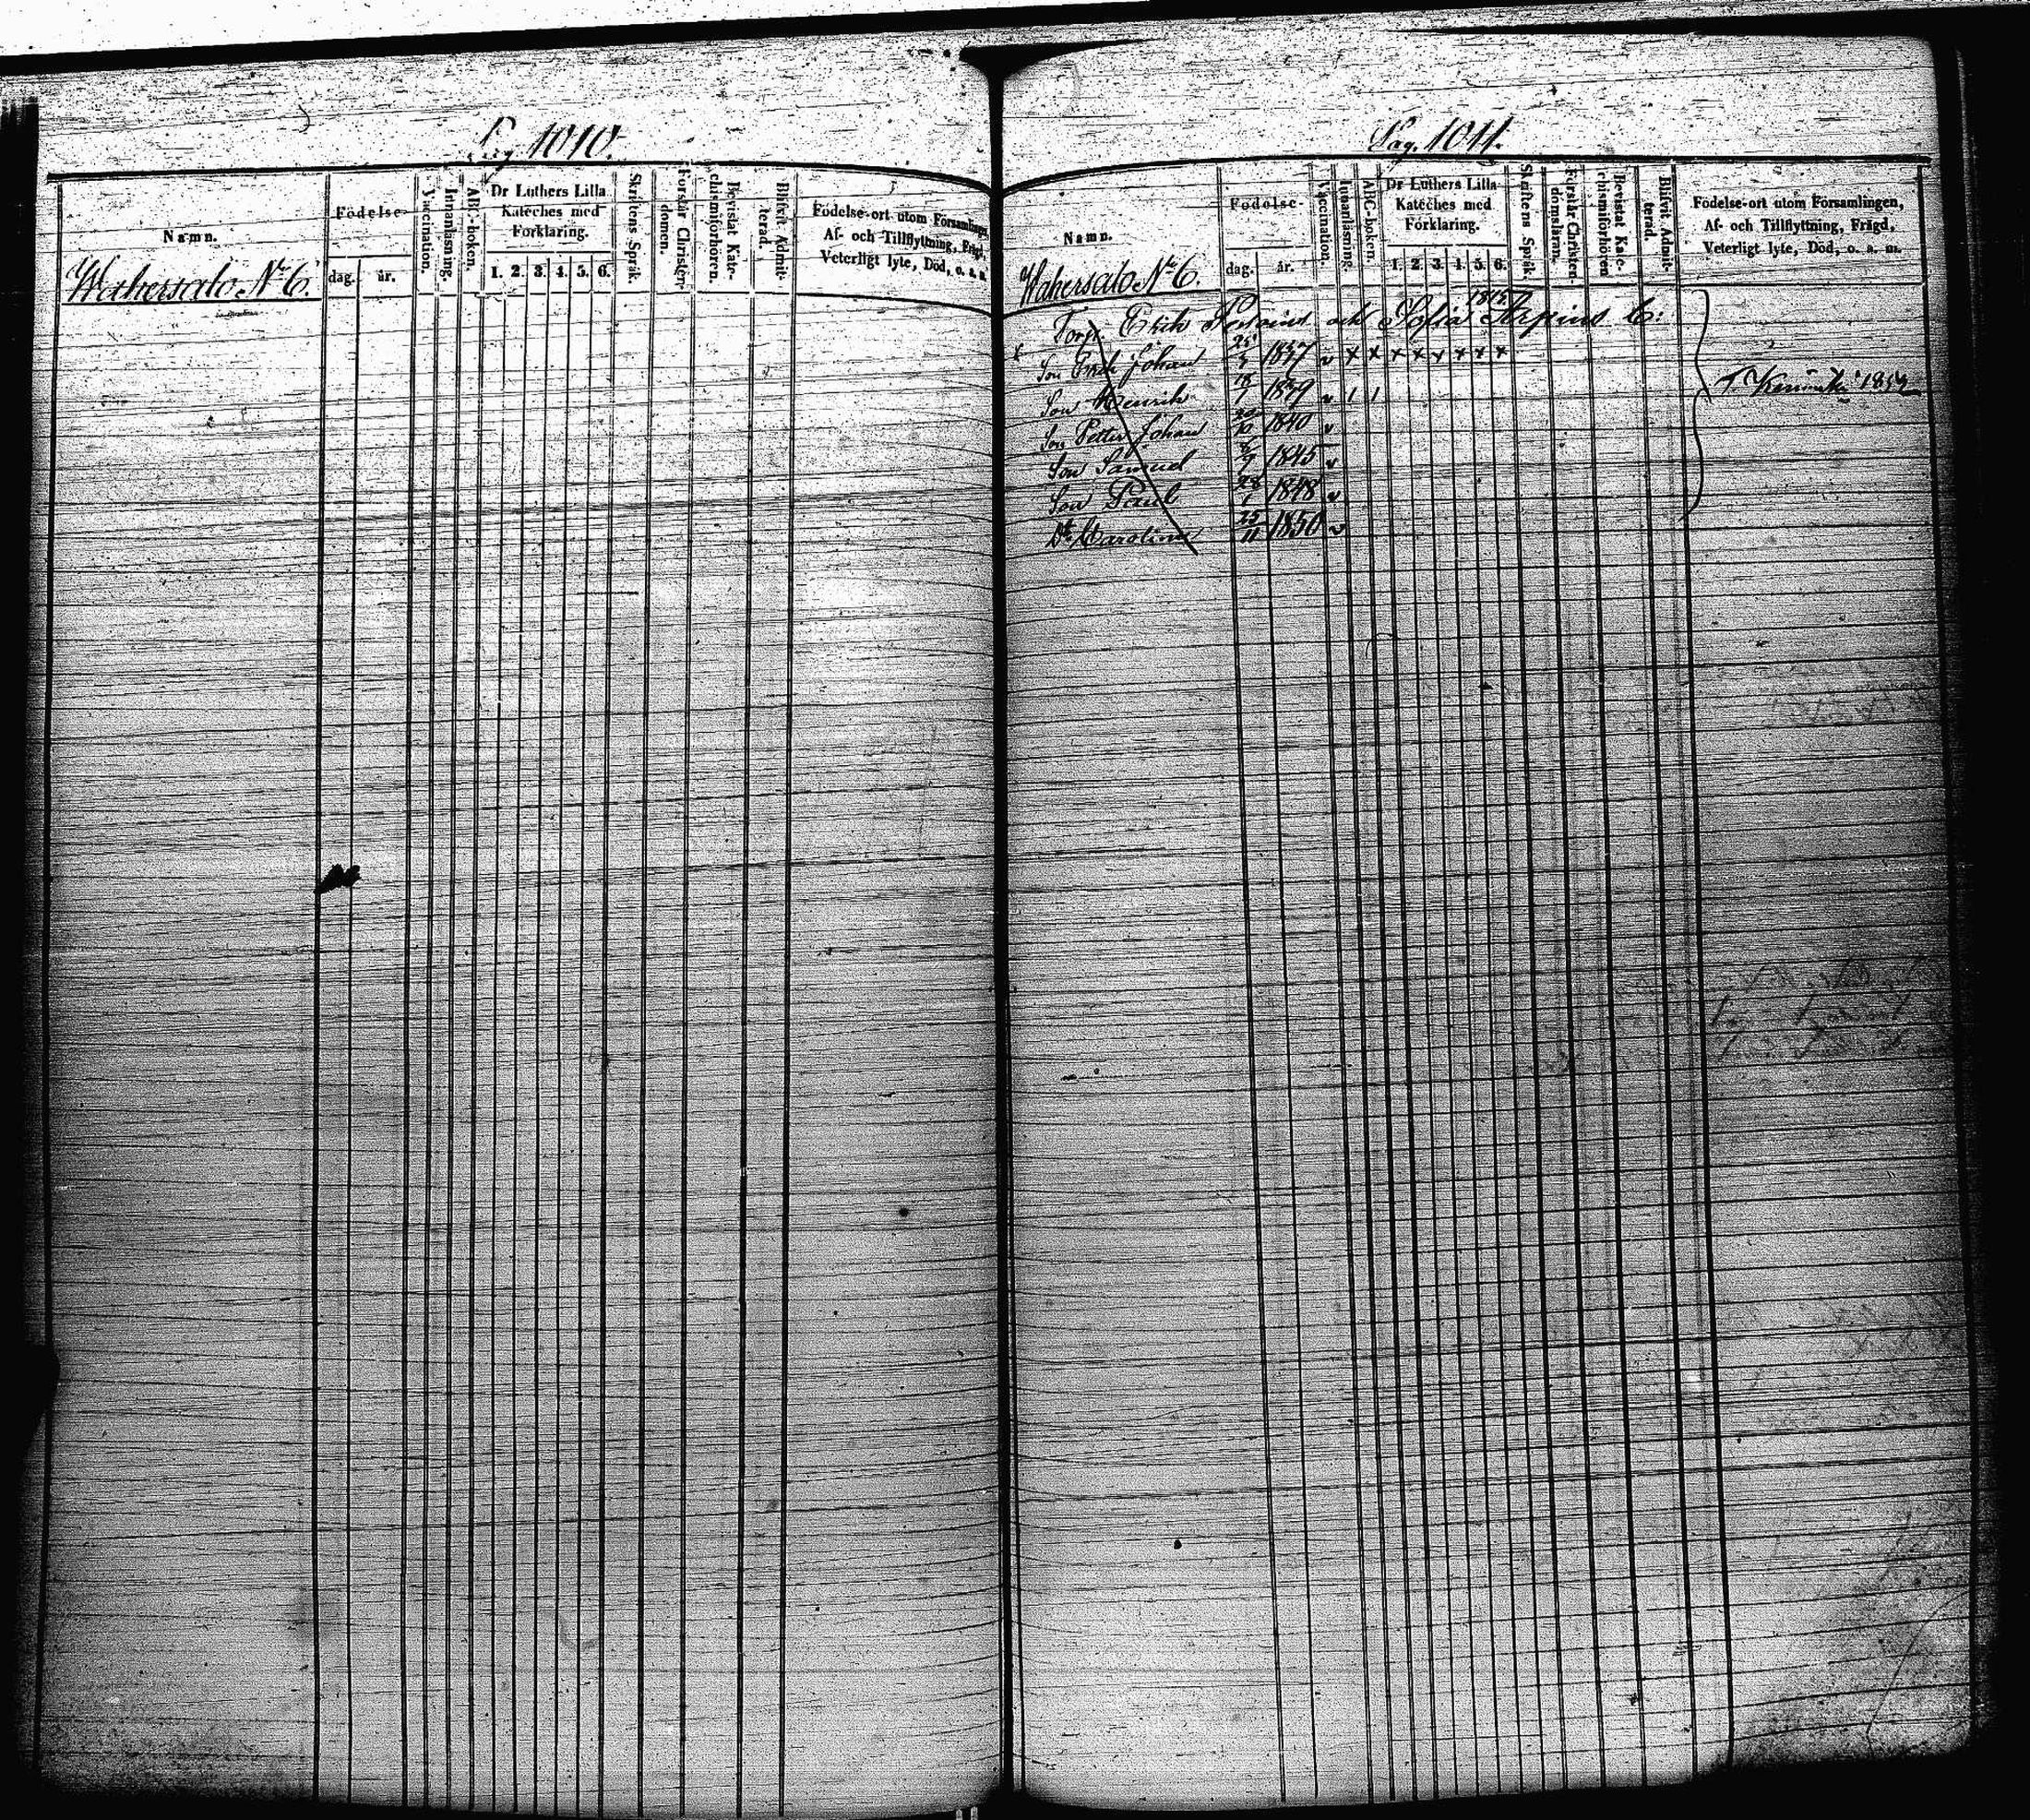 Pag. 1010.
Namn.
Födelse-
dag. år.
Vaccination.
Innanläsning.
ABC-boken.
Dr Luthers Lilla
Kateches med
Förklaring.
1. 2. 3. 4. 5. 6.
Skriftens Språk.
Förstår Christen-
domen.
Bevistat Kate-
chismiförhören.
Blifvit Admit-
terad.
Födelse-ort utom Församlingen,
Af- och Tillflyttning, Frägd,
Veterligt lyte, Död, o. s. a.
Wahersalo No 6.
Pag. 1011.
Namn.
Födelse-
dag. år.
Vaccination.
Innanläsning.
ABC-boken.
Dr Luthers Lilla
Kateches med
Förklaring.
1. 2. 3. 4. 5. 6.
Skriftens Språk.
Förstår Christen-
domsläran.
Bevistat Kate-
chismiförhören
Blifvit Admit-
terad.
Födelse-ort utom Församlingen,
Af- och Tillflyttning, Frägd,
Veterligt lyte, Död, o. s. m.
Wahersalo No 6.
Torp. Erik och Sofia
Son Erik Johan 1837 v x x x x x x x x
Son Henrik 1839 v
Son Petter Johan 1840 v
Son Samuel 1845 v
Son Paul 28/1 1848 v
Dr Carolina 25/11 1850 v